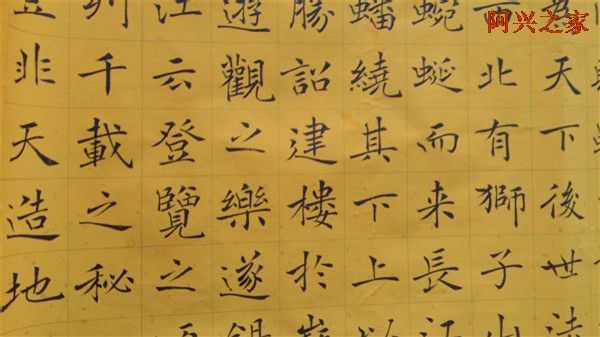 天下後世法
北有獅子山
蜿蜒而来長江
蟠繞其下上以
勝詔建樓於
遊觀之樂遂錫
江云登覽之
列千載之秘
非天造地
阿兴之家